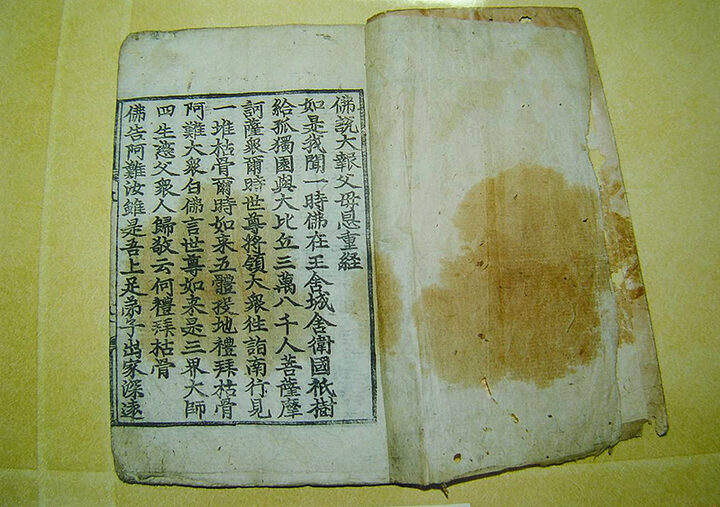 佛說大報父母恩重経
如是我聞一時佛在王舍城舍衛國祇樹
給孤獨園與大比丘三萬八千人菩薩摩
訶薩衆爾時世尊將領大衆徃詣南行見
一堆枯骨爾時如来五體投地禮拜枯骨
阿難大衆白佛言世尊如来是三界大師
四生慈父衆人歸敬云何禮拜枯骨
佛告阿難汝雖是吾上足弟子出家深遠